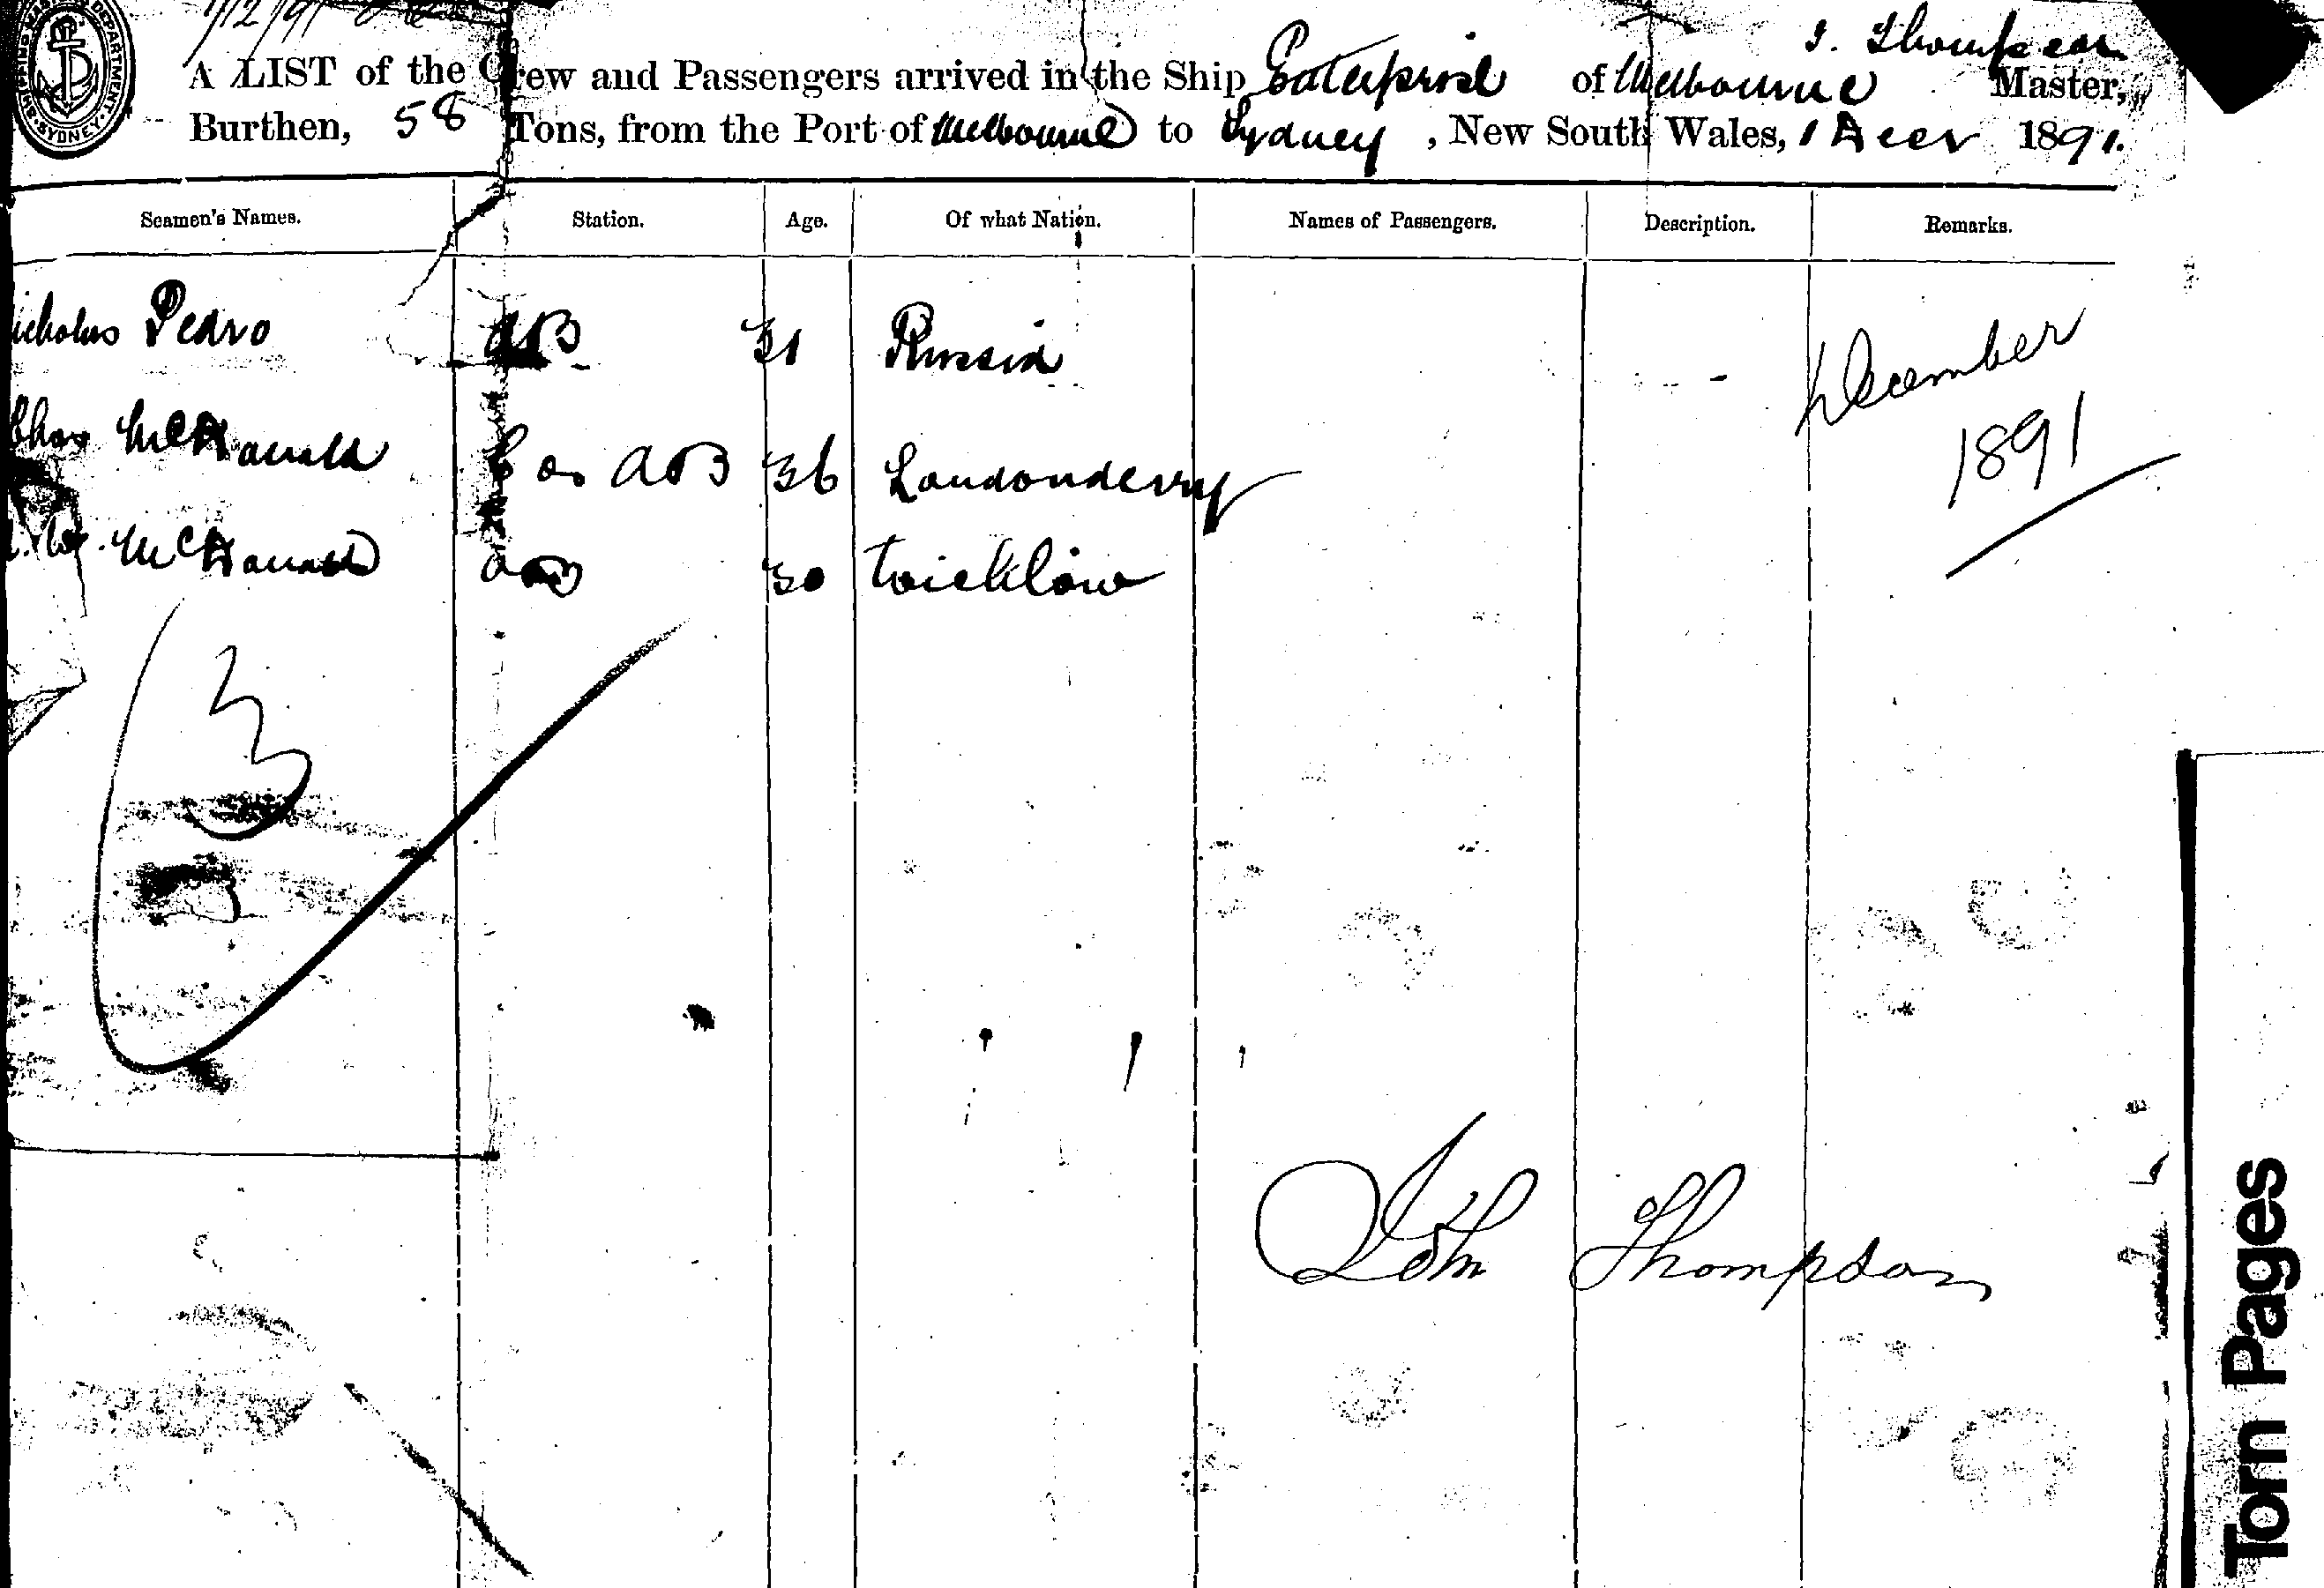 1/12/91
SHIPPING MASTER'S DEPARTMENT · SYDNEY ·
J. Thompson
A LIST of the Crew and Passengers arrived in the Ship Enterprise of Melbourne Master,
Burthen, 58 Tons, from the Port of Melbourne to Sydney, New South Wales, 1 Decr 1891.
Seamen's Names. Station. Age. Of what Nation. Names of Passengers. Description. Remarks.
icholas Pedro AB 31 Russia
Chas McDonald C as AB 36 Londonderry
W. McDonald AB 30 Wicklow
December
1891
3
John Thompson
Torn Pages